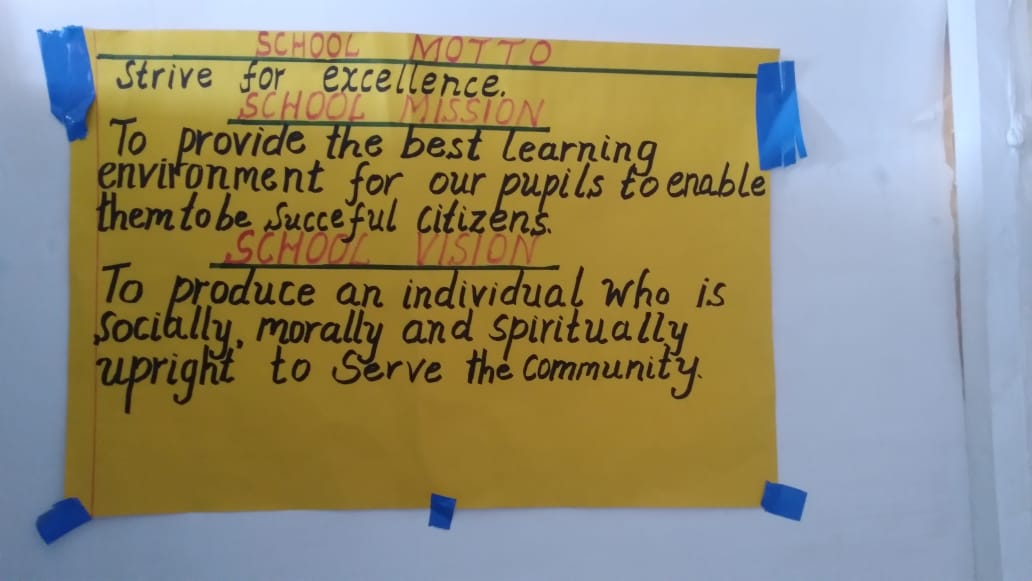 SCHOOL MOTTO
Strive for excellence.
SCHOOL MISSION
To provide the best learning
environment for our pupils to enable
them to be Succeful citizens.
SCHOOL VISION
To produce an individual who is
Socially, morally and spiritually
upright to Serve the community.